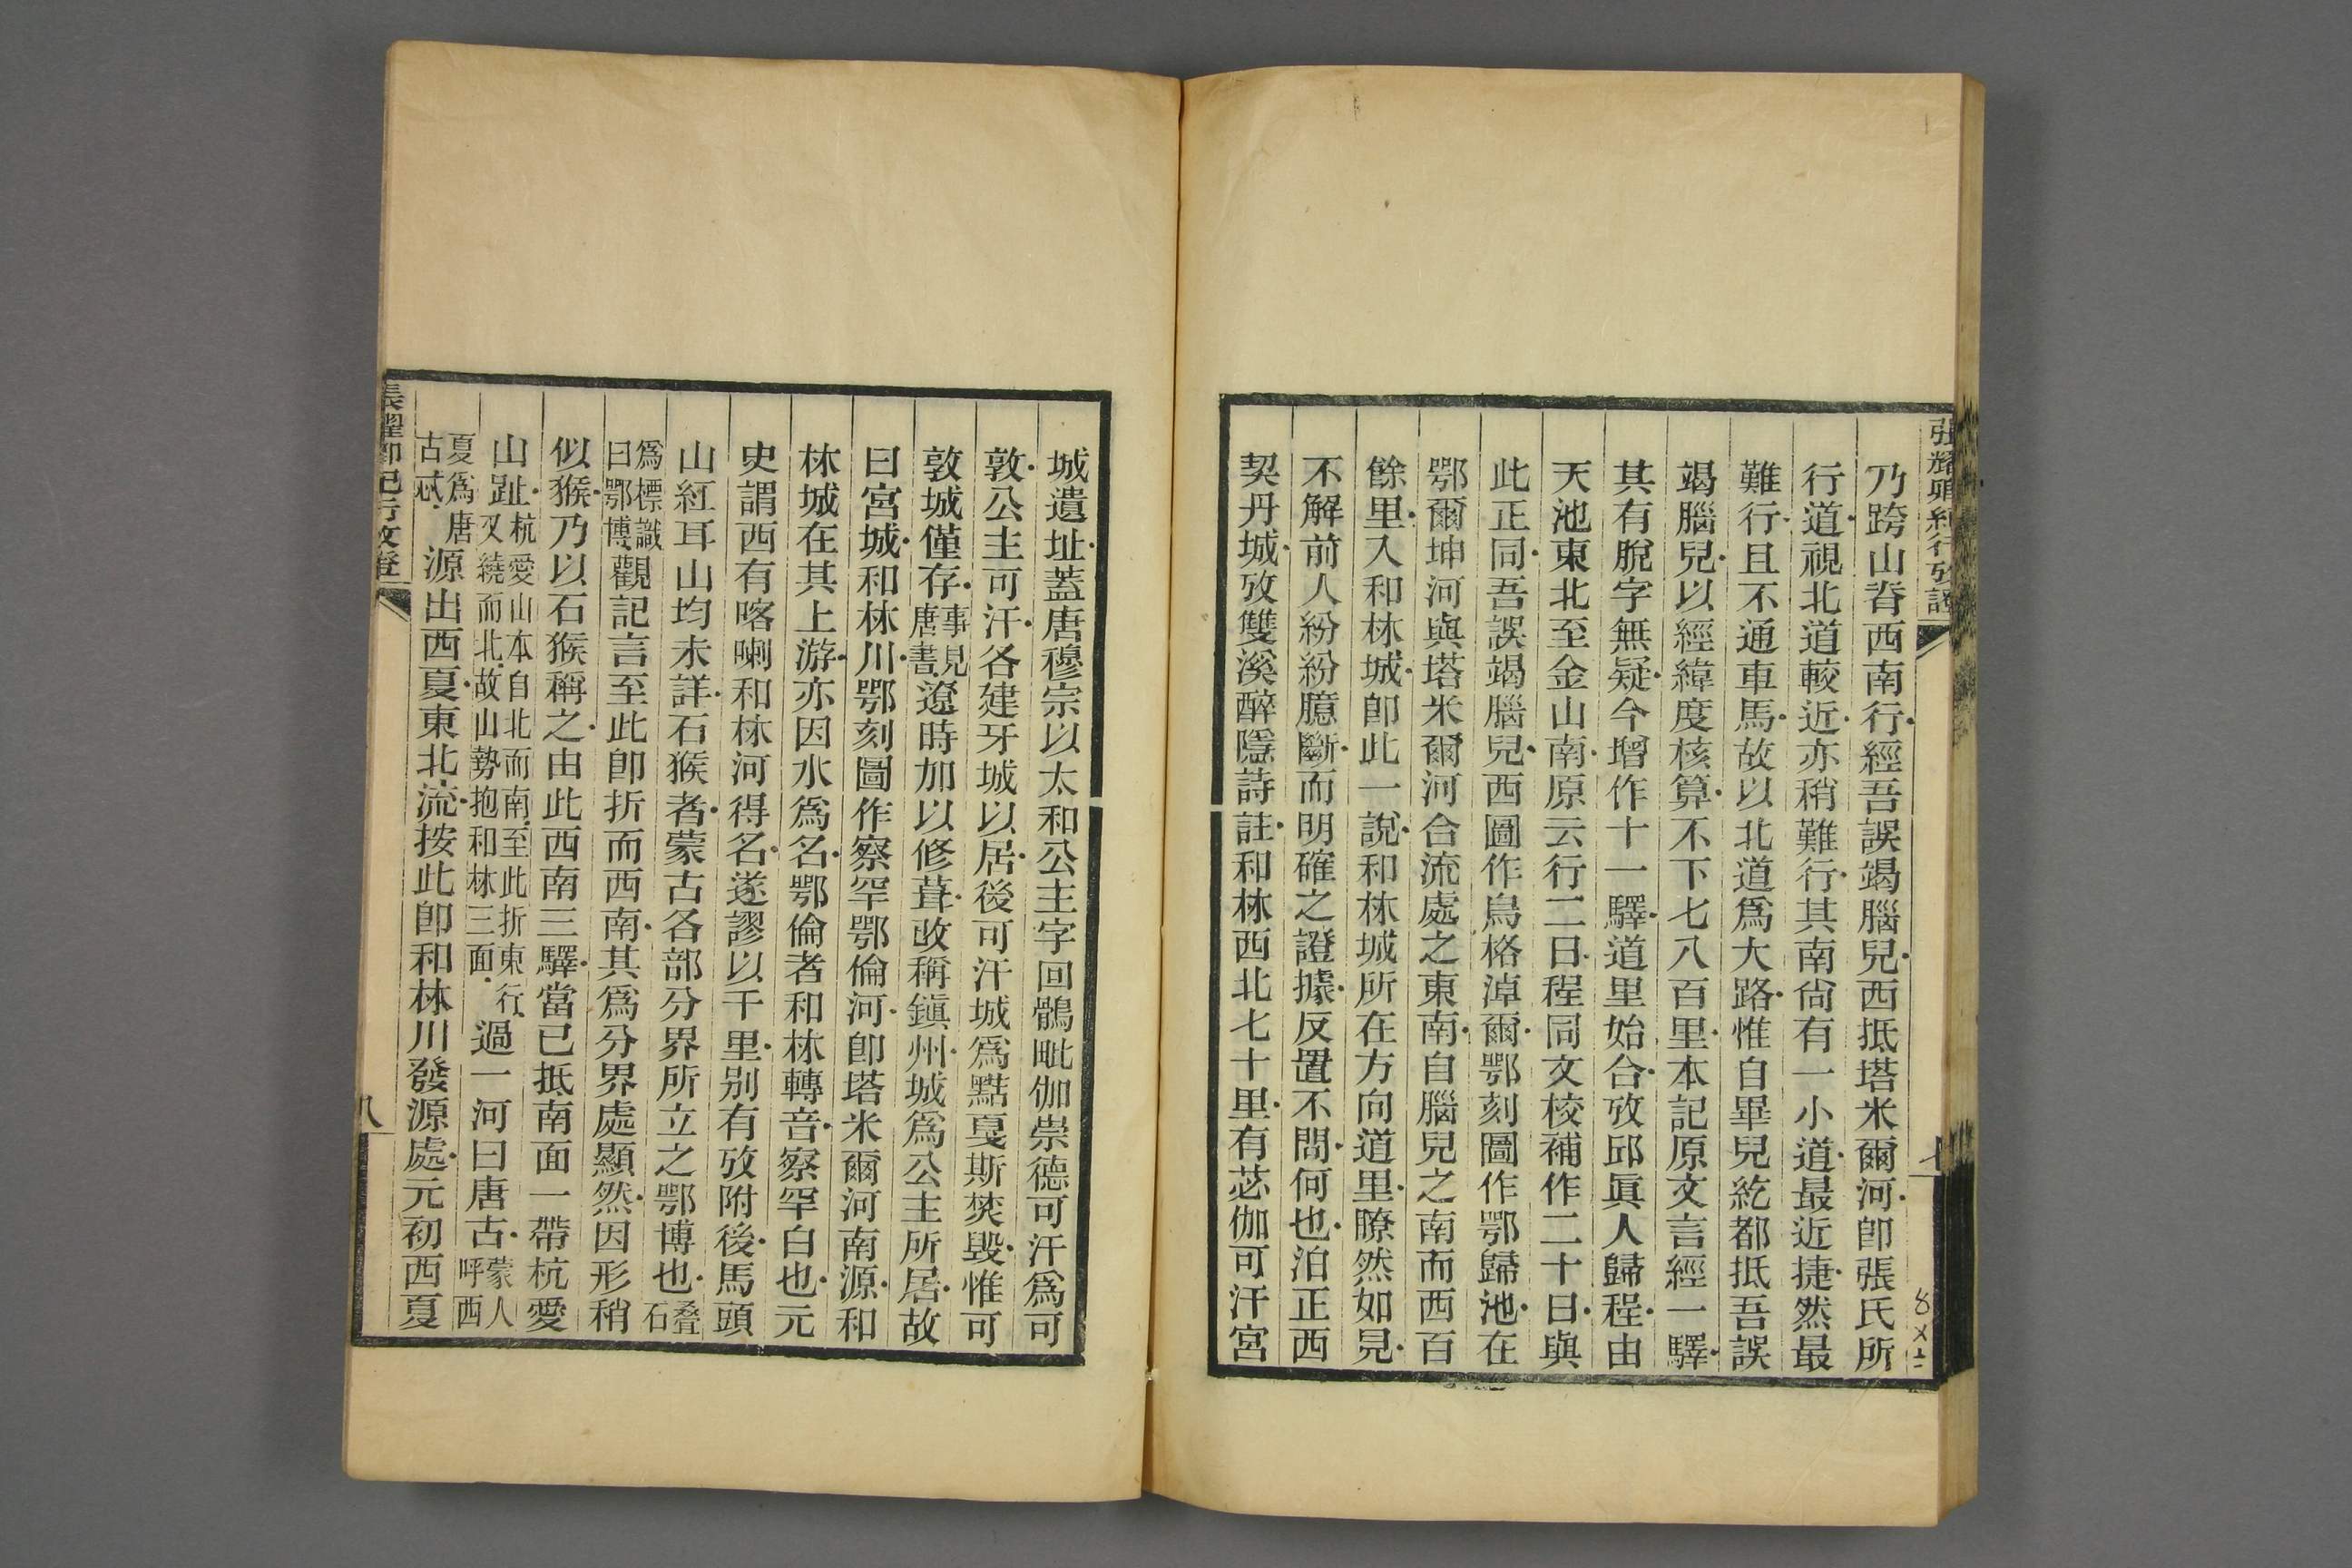 乃跨山脊西南行經吾誤竭腦兒西抵塔米爾河卽張氏所
行道視北道較近亦稍難行其南尙有一小道最近捷然最
難行且不通車馬故以北道爲大路惟自畢兒紇都抵吾誤
竭腦兒以經緯度核算不下七八百里本記原文言經一驛
其有脫字無疑今增作十一驛道里始合攷邱眞人歸程由
天池東北至金山南原云行二日程同文校補作二十日與
此正同吾誤竭腦兒西圖作烏格淖爾鄂刻圖作鄂歸池在
鄂爾坤河與塔米爾河合流處之東南自腦兒之南而西百
餘里入和林城卽此一說和林城所在方向道里瞭然如見
不解前人紛紛臆斷而明確之證據反置不問何也泊正西
契丹城攷雙溪醉隱詩註和林西北七十里有苾伽可汗宮
城遺址蓋唐穆宗以太和公主字回鶻毗伽崇德可汗爲可
敦公主可汗各建牙城以居後可汗城爲黠戛斯焚毀惟可
敦城僅存事見唐書遼時加以修葺改稱鎭州城爲公主所居故
曰宮城和林川鄂刻圖作察罕鄂倫河卽塔米爾河南源和
林城在其上游亦因水爲名鄂倫者和林轉音察罕白也元
史謂西有喀喇和林河得名遂謬以千里别有攷附後馬頭
山紅耳山均未詳石猴者蒙古各部分界所立之鄂博也叠石
爲標識曰鄂博觀記言至此卽折而西南其爲分界處顯然因形稍
似猴乃以石猴稱之由此西南三驛當已抵南面一帶杭愛
山趾杭愛山本自北而南至此折東行又繞而北故山勢抱和林三面過一河曰唐古蒙人呼西
夏爲唐古忒源出西夏東北流按此卽和林川發源處元初西夏